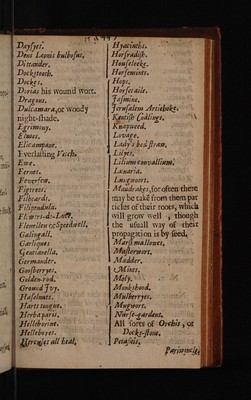 Daysyes.
Dens Leonis bulbosus,
Dittander.
Docks.
Dorias his wound wort.
Dragons.
Dulcamara, or woody
night-shade.
Egrimony.
Elmes.
Elicampane.
Everlasting Vetch.
Ewe.
Fernes.
Feverfew.
Figtrees.
Filbeards.
Filipendula.
Galingall.
Garlique
Gentianella.
Germander.
Goosberryes.
Golden-rod.
Ground Ivy.
Haselnuts.
Harts tongue.
Herba paris.
Helleborine.
Hellebores.
Hercules all heal,
Hyacinths.
Horsradish.
Houseleeke.
Horsemints.
Hops.
Horsetaile.
Jasmine.
Jerusalem Artichoke.
Kentish Codlings.
Knapweed.
Lovage.
Lady's bedstraw.
Lilyes.
Lilium convallium.
Lunaria.
Lungwort.
Mandrakes, for often there
may be takē from them par
ticles of their roots, which
will grow well, though
the usuall way of their
propagation is by seed.
Marsh mallowes.
Masterwort.
Madder.
Mints.
Moly.
Monkshood.
Mulberryes.
Mugwort.
Nurse-gardens.
All sorts of Orchis, or
Docks-stone.
Petasitis,